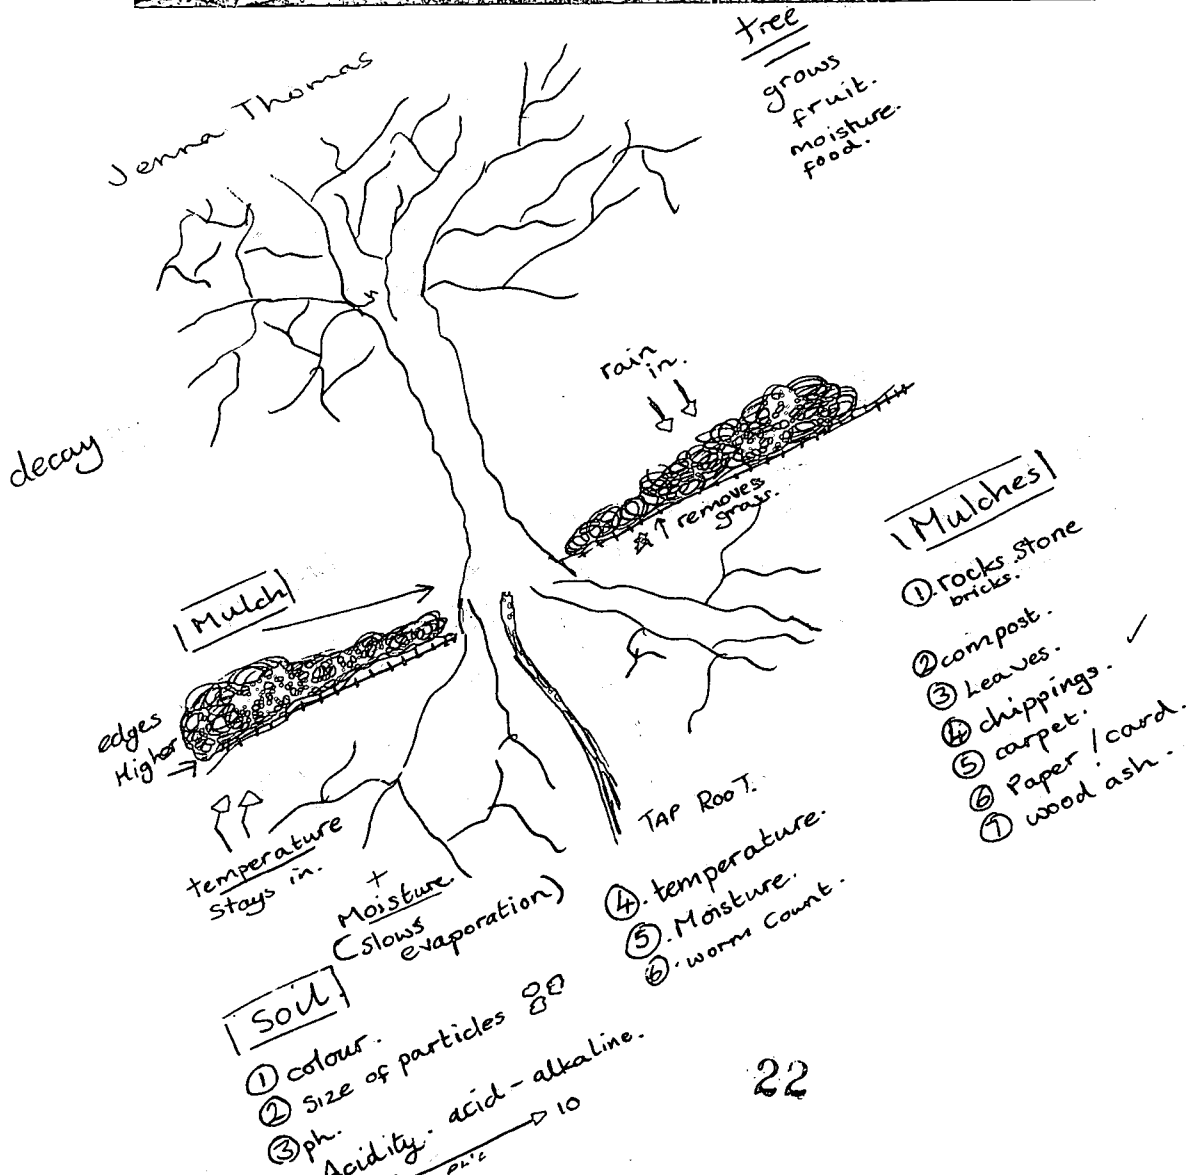 tree
grows
fruit.
moisture.
food.
Jenna Thomas
decay
rain
in.
removes
grass.
Mulch
edges
Higher
temperature
stays in.
+
Moisture.
(slows
evaporation)
TAP ROOT.
Mulches
① rocks stone
bricks.
② compost.
③ Leaves.
④ chippings. ✓
⑤ carpet.
⑥ Paper / card.
⑦ wood ash.
Soil
① colour.
② size of particles
③ ph.
Acidity. acid - alkaline.
10
④. temperature.
⑤. Moisture.
⑥. worm count.
22